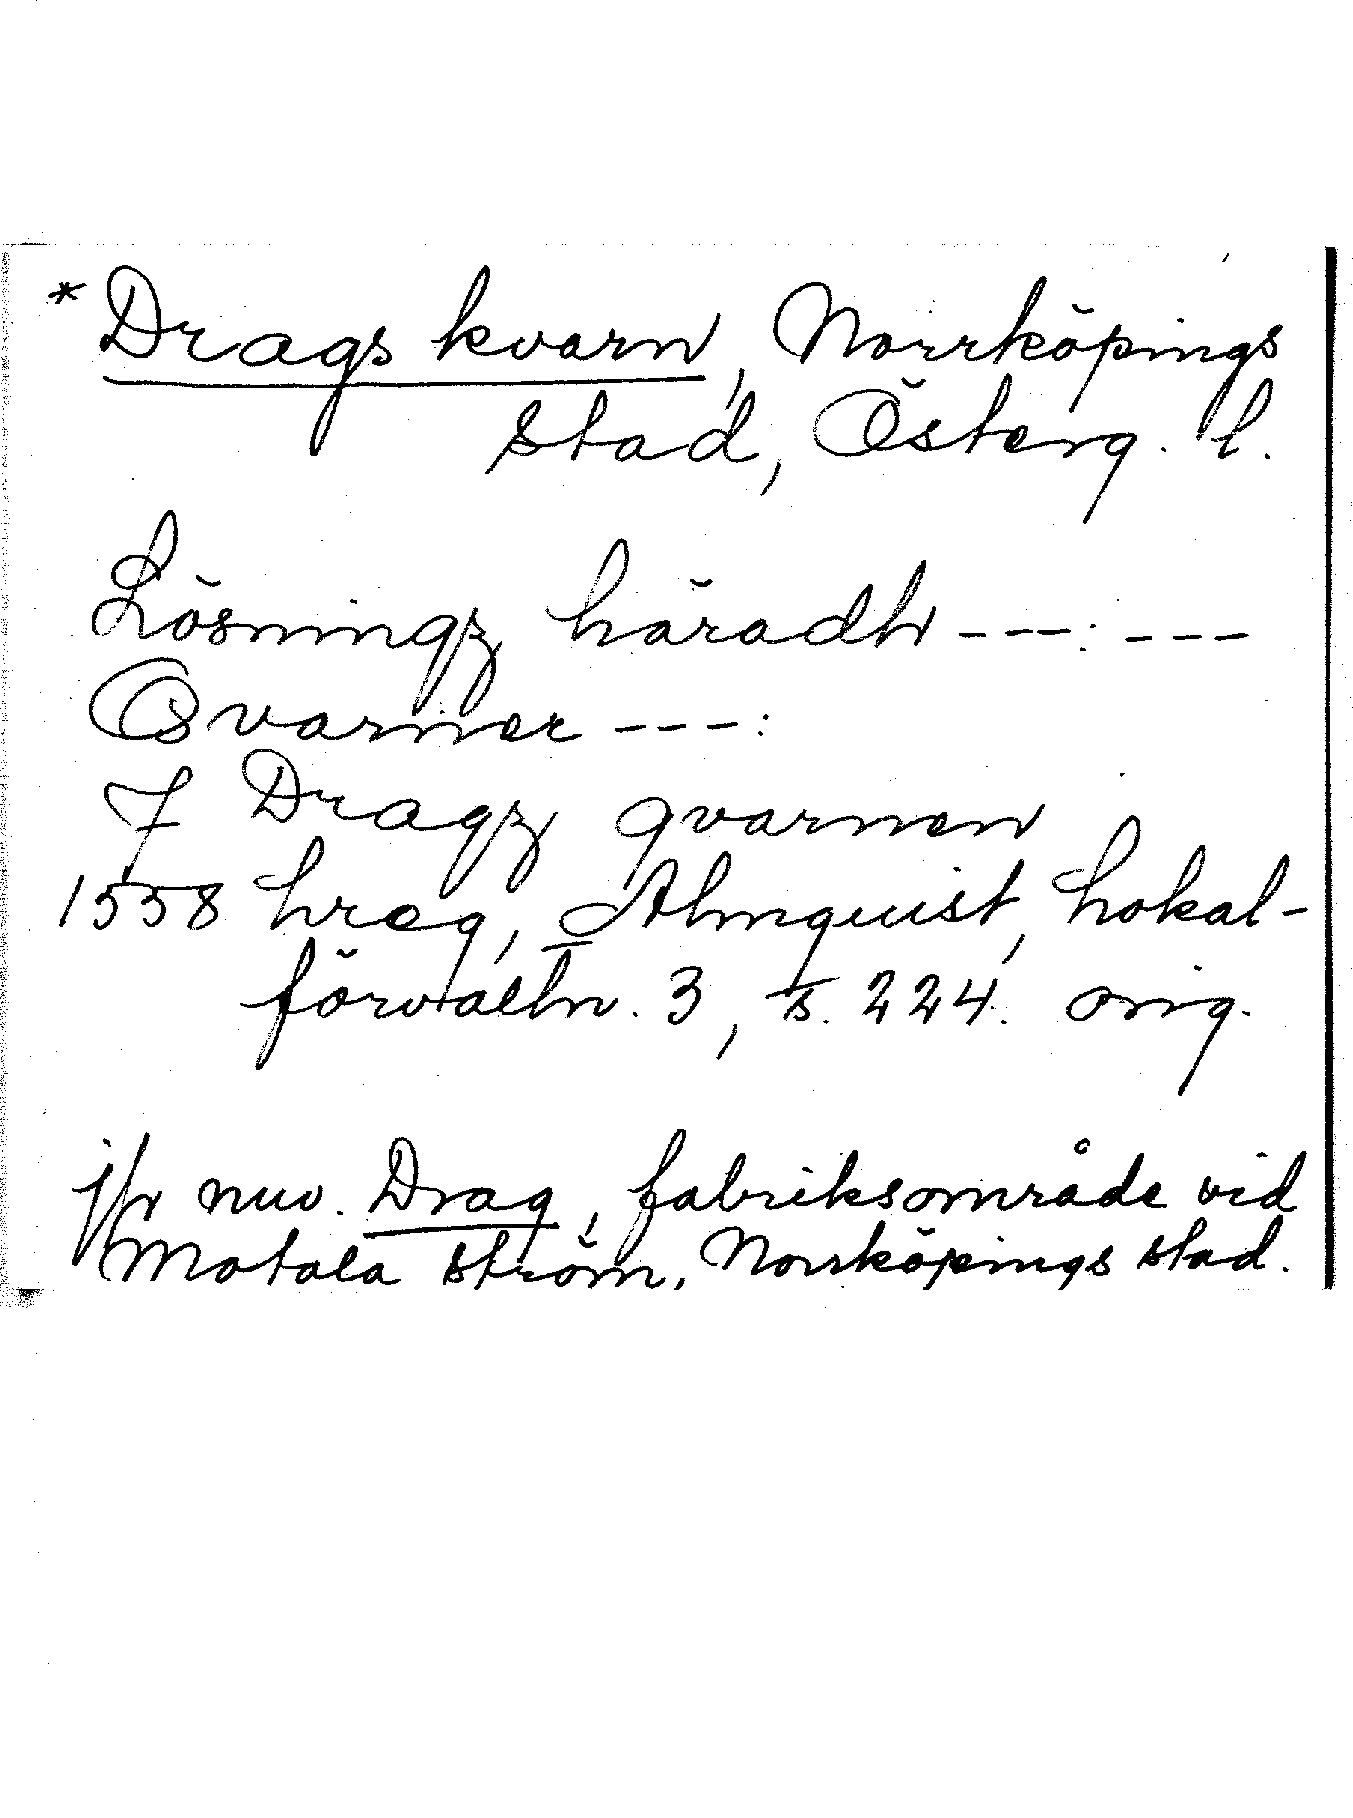 * Drags kvarn, Norrköpings
stad, Österg. l.
Lösningz häradh ---: ---
Qvarner ---:
J Dragz qvarnen
1558 hreg, Almquist, Lokal-
förvaltn. 3, s. 224. orig.
jfr nuv. Drag, fabriksområde vid
Motala ström, Norrköpings stad.